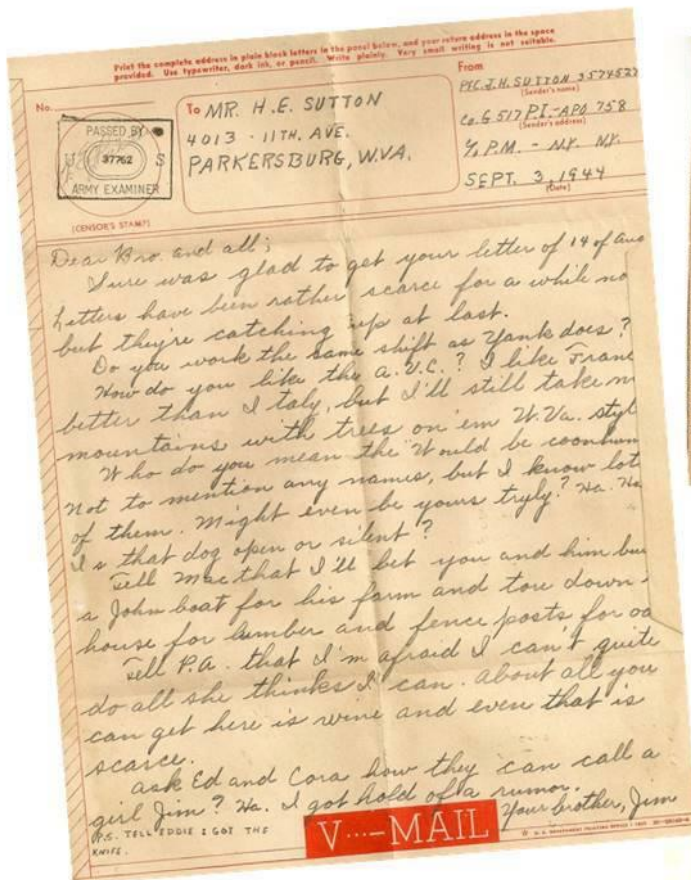 Print the complete address in plain block letters in the panel below, and your return address in the space
provided. Use typewriter, dark ink, or pencil. Write plainly. Very small writing is not suitable.
No.
PASSED BY
U S
37762
ARMY EXAMINER
(CENSOR'S STAMP)
To MR. H.E. SUTTON
4013 - 11TH. AVE.
PARKERSBURG, W.VA.
From
PFC. J.H. SUTTON 3574527
(Sender's name)
Co. G 517 P.I.-APO 758
(Sender's address)
% P.M. - N.Y. N.Y.
SEPT. 3, 1944
(Date)
Dear Bro. and all;
Sure was glad to get your letter of 14 of Aug
Letters have been rather scarce for a while no
but they're catching up at last.
Do you work the same shift as Yank does?
How do you like the A.V.C.? I like Franc
better than Italy, but I'll still take m
mountains with trees on 'em W.Va. styl
Who do you mean the "Would be coonhun
Not to mention any names, but I know lot
of them. Might even be yours tryly? Ha. Ha
Is that dog open or silent?
Tell Mac that I'll bet you and him bui
a John boat for his farm and tore down
house for lumber and fence posts for
Tell P.A. that I'm afraid I can't quite
do all she thinks I can. About all you
can get here is wine and even that is
scarce.
Ask Ed and Cora how they can call a
girl Jim? Ha. I got hold of a rumor.
Your brother, Jim
P.S. TELL EDDIE I GOT THE
KNIFE.
V...-MAIL